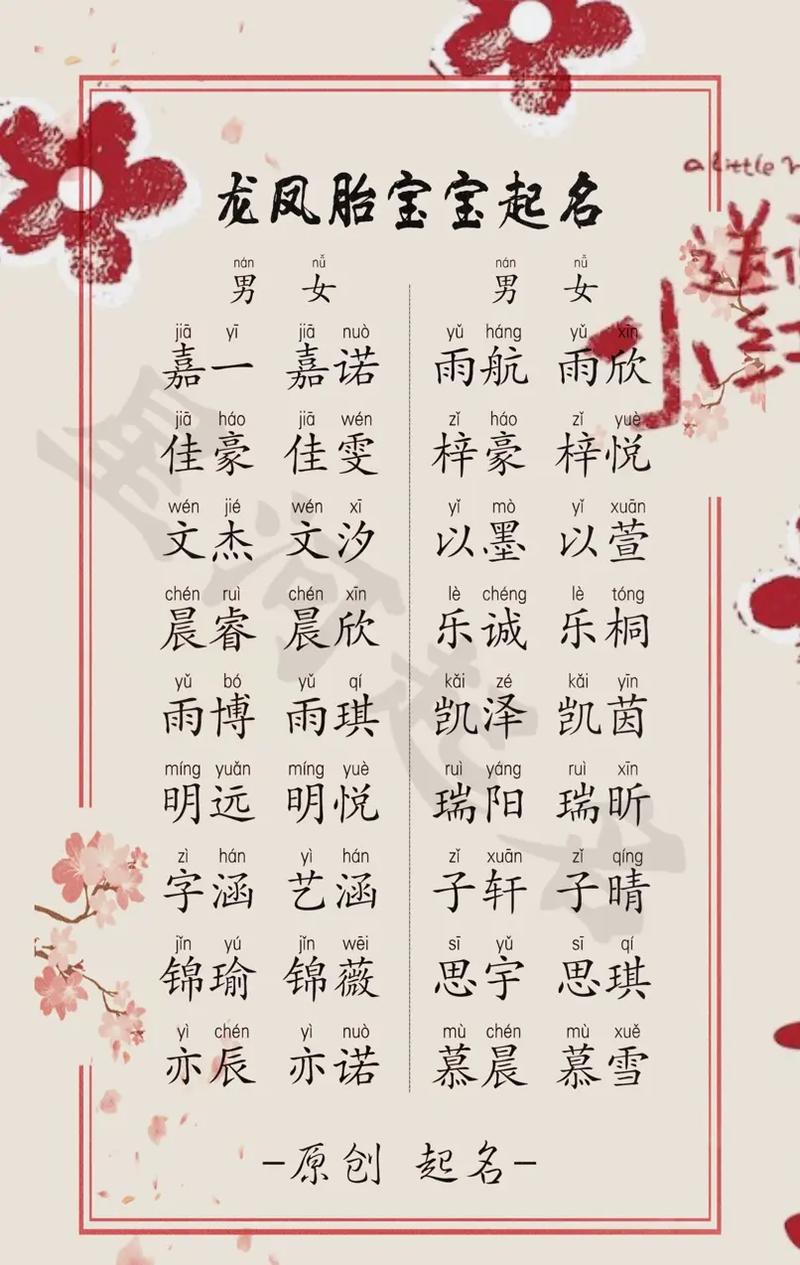 龙凤胎宝宝起名
a little
送
小红
nán nǚ nán nǚ
男 女 男 女
jiā yī jiā nuò yǔ háng yǔ xīn
嘉一 嘉诺 雨航 雨欣
jiā háo jiā wén zǐ háo zǐ yuè
佳豪 佳雯 梓豪 梓悦
wén jié wén xī yǐ mò yǐ xuān
文杰 文汐 以墨 以萱
chén ruì chén xīn lè chéng lè tóng
晨睿 晨欣 乐诚 乐桐
yǔ bó yǔ qí kǎi zé kǎi yīn
雨博 雨琪 凯泽 凯茵
míng yuǎn míng yuè ruì yáng ruì xīn
明远 明悦 瑞阳 瑞昕
zì hán yì hán zǐ xuān zǐ qíng
字涵 艺涵 子轩 子晴
jǐn yú jǐn wēi sī yǔ sī qí
锦瑜 锦薇 思宇 思琪
yì chén yì nuò mù chén mù xuě
亦辰 亦诺 慕晨 慕雪
星河起名
-原创 起名-